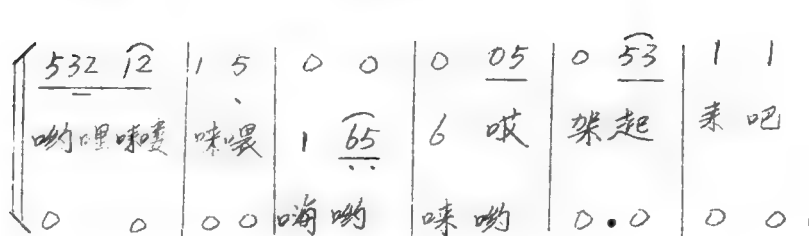 532 12 | 1 5 | 0 0 | 0 05 | 0 53 | 1 1
哟哩唻喽 | 唻喂 | 1 65 | 6 哎 | 架起 | 来吧
0 0 | 0 0 | 嗨哟 | 唻哟 | 0 . 0 | 0 0